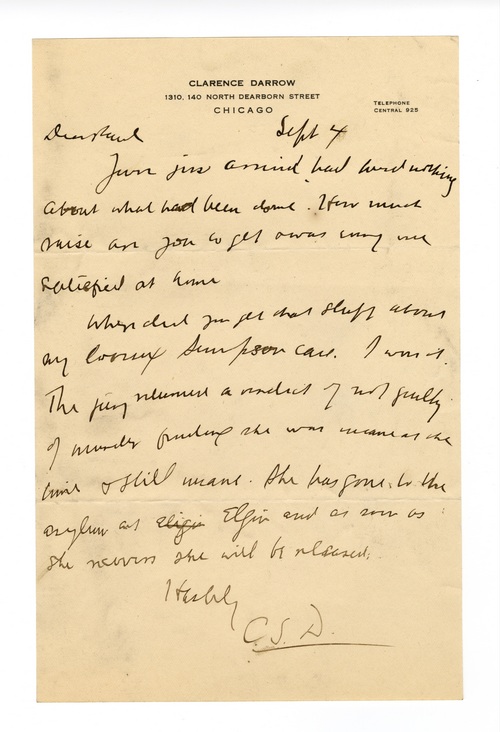 CLARENCE DARROW
1310, 140 NORTH DEARBORN STREET
CHICAGO
TELEPHONE
CENTRAL 925
Dear Paul
Sept 4
Yours just arrived, had heard nothing
about what had been done. How much
raise are you to get & was every one
satisfied at home
Where did you get that stuff about
my loosing Simpson case. I won it.
The jury returned a verdict of not guilty
of murder finding she was insane at the
time & still insane. She has gone to the
asylum at Elgin and as soon as
she recovers she will be released.
Hastily
C. S. D.